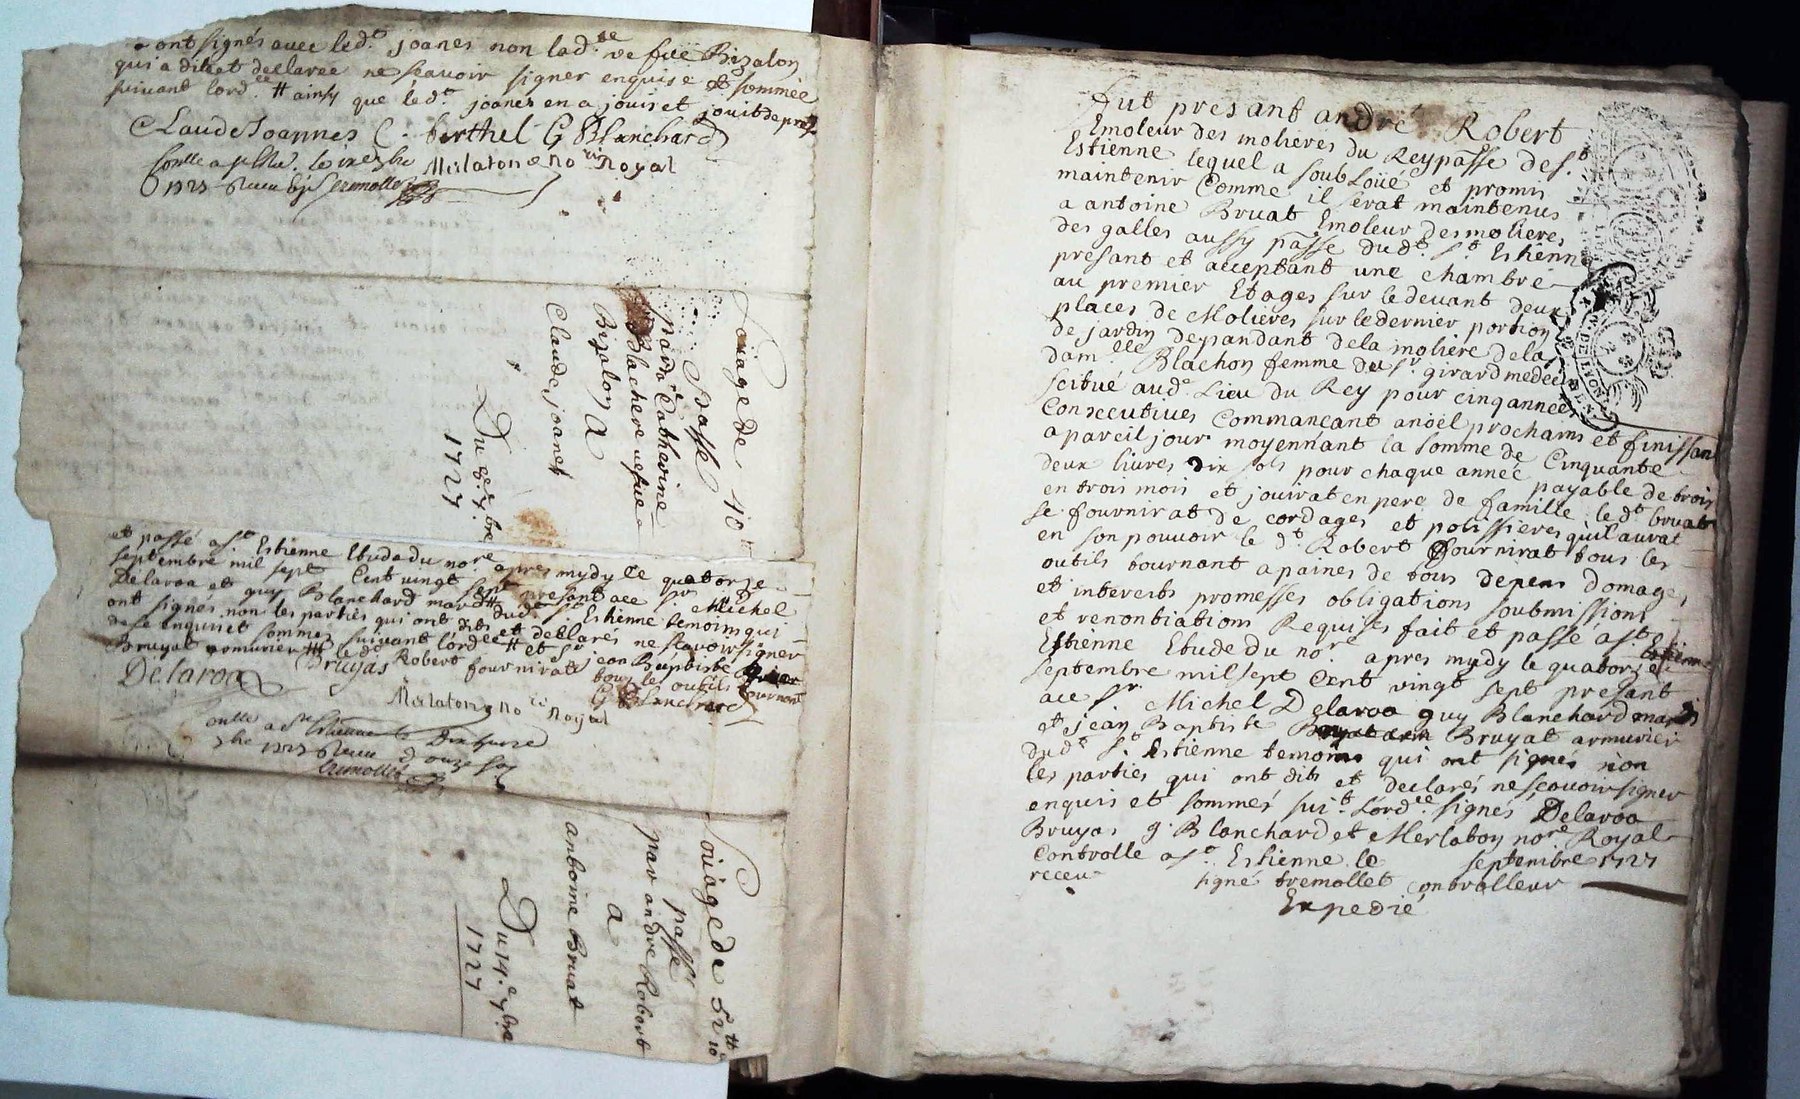 ont signés avec led.t joanes non lad.te ve fue Bizalon
qui a dit et declaree ne scavoir signer enquise et sommée
suivant lord.ce # ainsy que led.t joanes en a jouis et jouit de pnt
Claude Joannes C. berthel G Blanchard
Merlaton no.re Royal
1727
Loüage de 10tt
Passé
par d.e Catherine
Blachere vefue
Bizalon A
Claude joanes
Du 8.e 7bre
1727
et passé a St Estienne Etude du no.re apres mydy le quatorze
septembre mil sept Cent vingt sept presant ace Sr Michel
Delaroa et guy Blanchard mar.d dud.t St Estienne temoins qui
ont signés non les parties qui ont dits et declarés ne scavoir signer
de ce enquis et sommés suivant lord.ce # et Sr jean Baptiste
Bruyat armurier ## led.t Robert fournirat tous les outils tournant
Delaroa Bruyas G Blanchard
Merlaton no.re Royal
Loüage de 52tt 10s
passé
par andre Robert
a
antoine Bruat
Du 14.e 7bre
1727
fut presant andre Robert
Emoleur des molieres du Rey passe de St
Estienne lequel a soubLoüé et promis
maintenir Comme il serat maintenus
a antoine Bruat Emoleur des molieres
des galles aussy passe dud.t St Estienne
presant et acceptant une chambre
au premier Etages sur le devant deux
places de Molieres sur le dernier portion
de jardin dependant de la moliere de la
dam.lle Blachon femme du Sr girard medecin
scitué aud.t Lieu du Rey pour cinq année
Consecutives Commancant a noël prochains et finissan
a pareil jour moyennant la somme de Cinquante
deux livres dix sols pour chaque année payable de trois
en trois mois et jouirat en pere de famille led.t bruat
se fournirat de cordages et polissieres qu'il aurat
en son pouvoir le d.t Robert fournirat tous les
outils tournant a paines de tous depens domages
et interests promesses obligations soubmissions
et renontiations Requises fait et passé a St Estienne
Estienne Etude du no.re apres mydy le quatorze
septembre mil sept Cent vingt sept presant
ace Sr Michel Delaroa guy Blanchard mar.ds
et jean Baptiste Bruyat armurier
dud.t St Estienne temoins qui ont signés non
les parties qui ont dits et declarés ne scavoir signer
enquis et sommés sui.t lord.ce signés Delaroa
Bruyas g. Blanchard et Merlaton no.re Royal
Controlle a St Estienne le septembre 1727
receu signé tremollet controlleur
Expedié